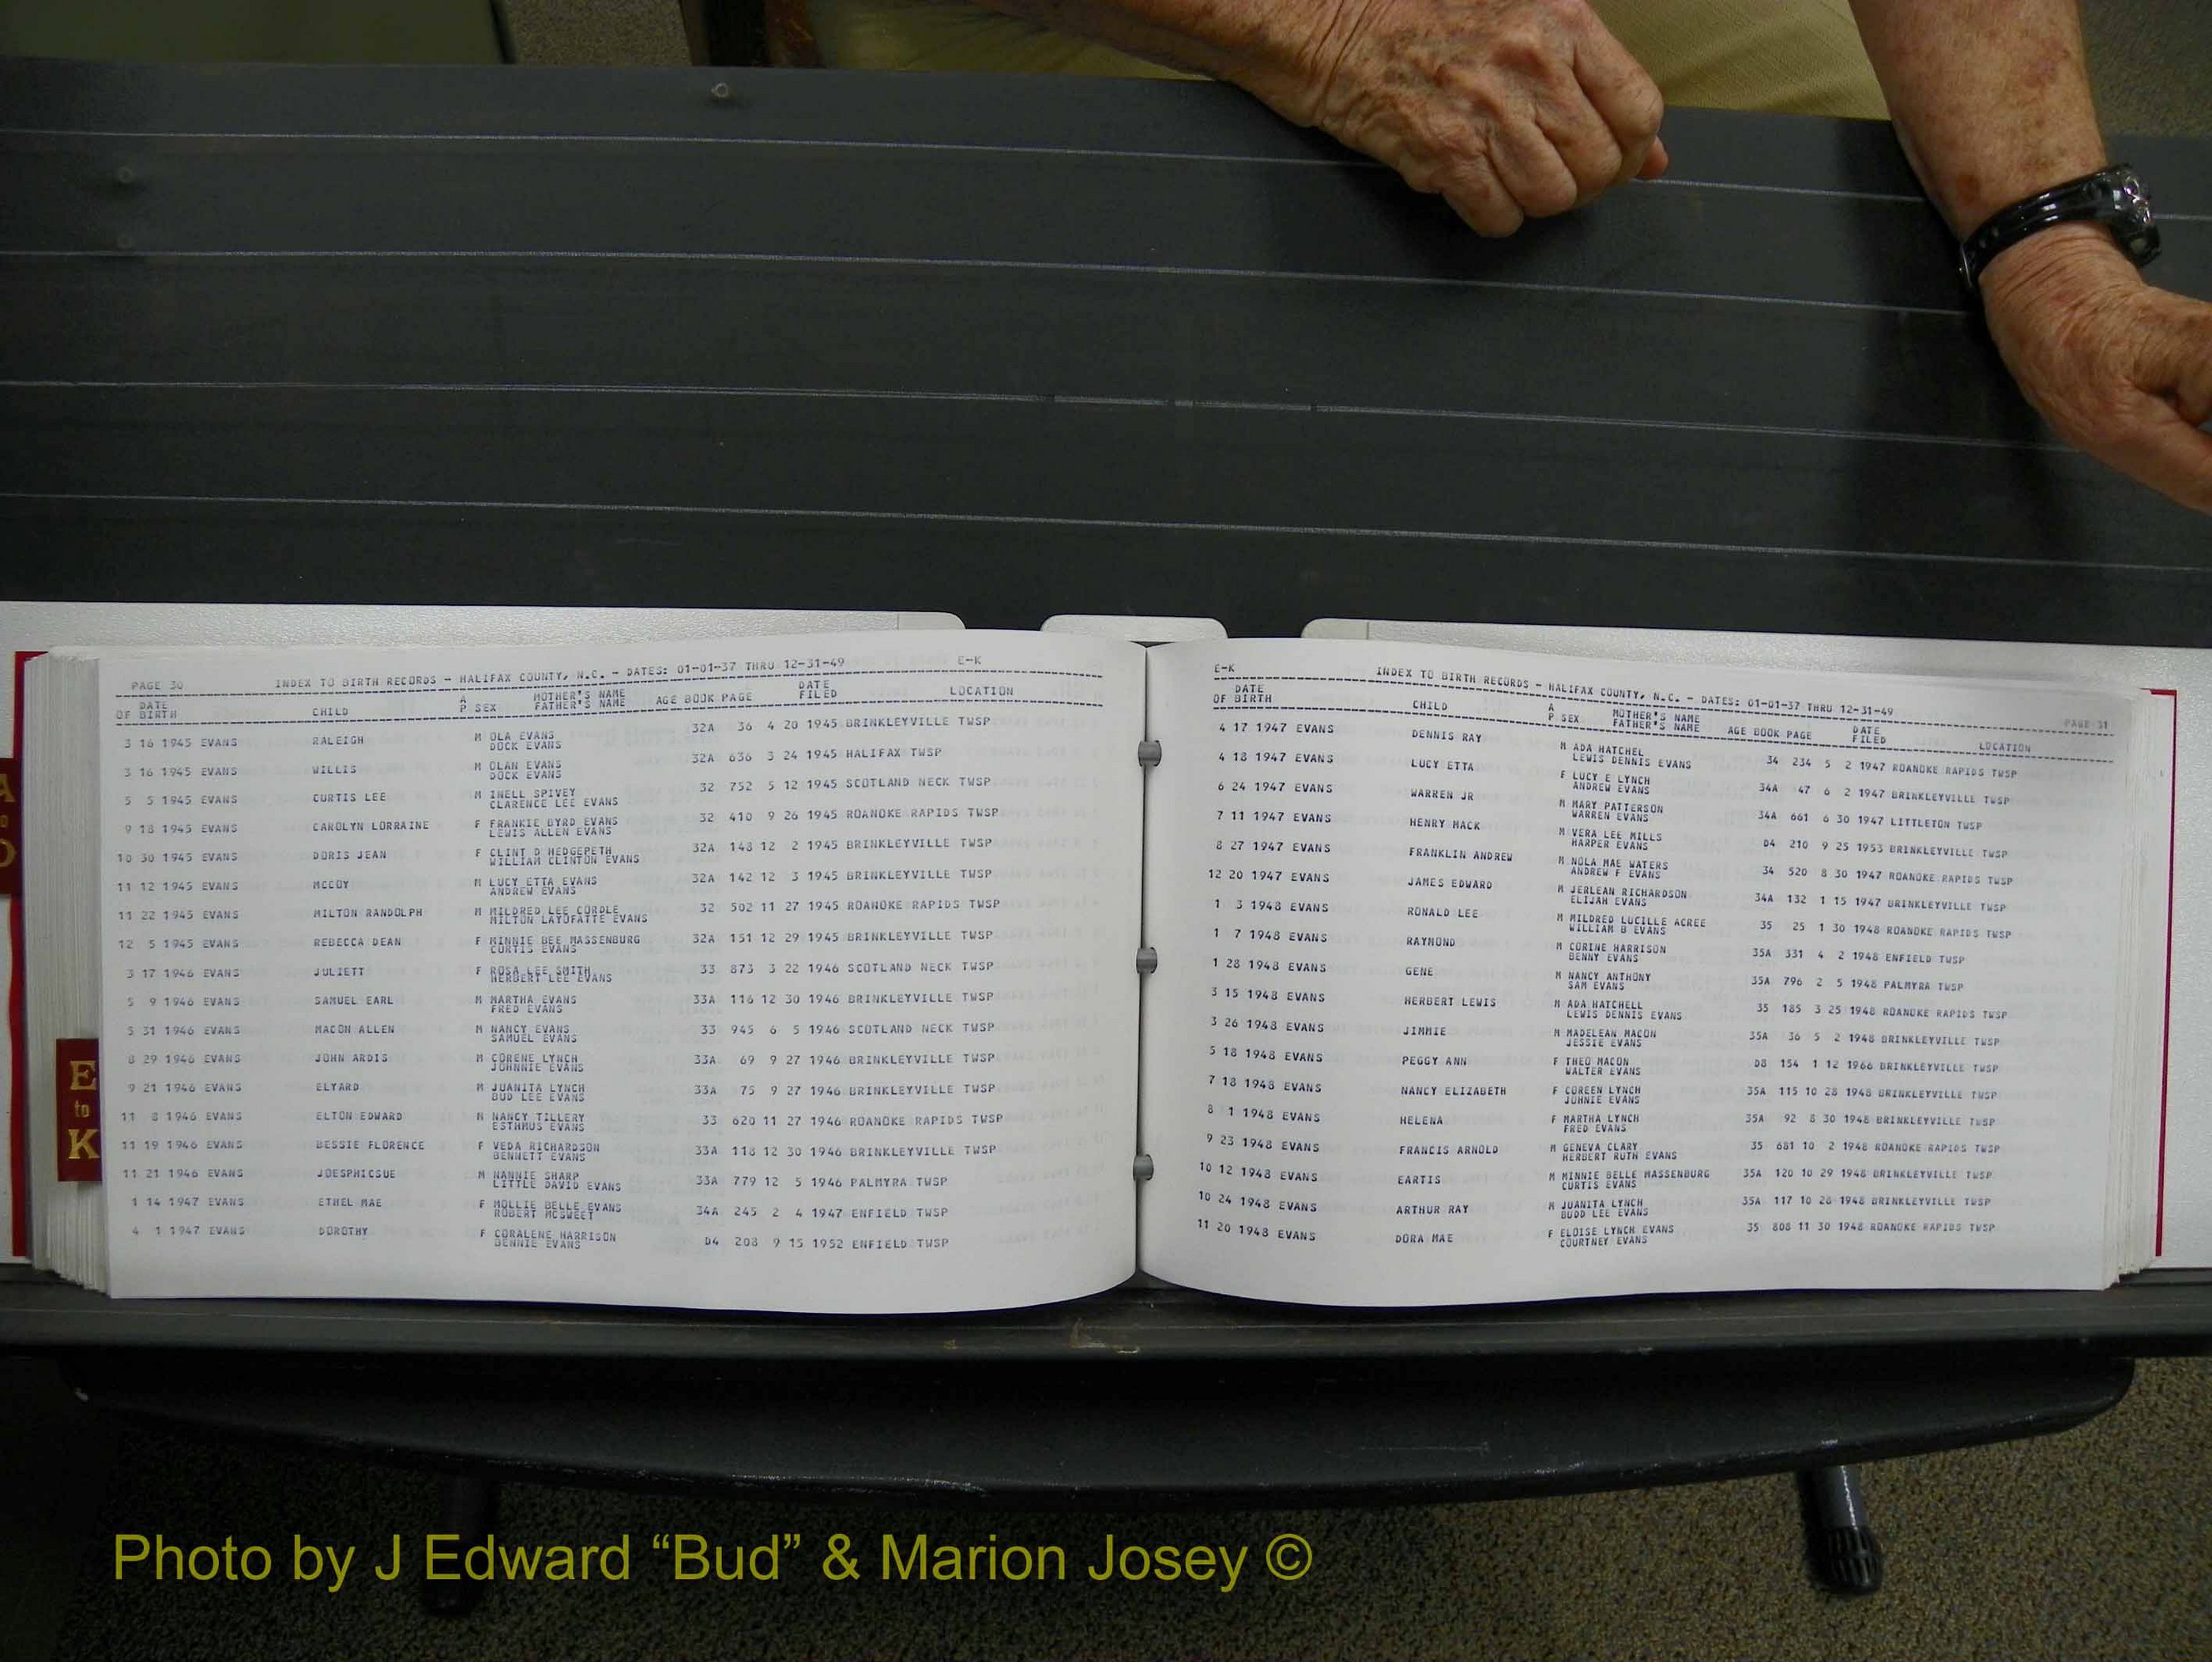 PAGE 30 INDEX TO BIRTH RECORDS - HALIFAX COUNTY, N.C. - DATES: 01-01-37 THRU 12-31-49 E-K
DATE OF BIRTH CHILD AP SEX MOTHER'S NAME FATHER'S NAME AGE BOOK PAGE DATE FILED LOCATION
3 16 1945 EVANS RALEIGH M OLA EVANS 32A 36 4 20 1945 BRINKLEYVILLE TWSP
DOCK EVANS
3 16 1945 EVANS WILLIS M OLAN EVANS 32A 636 3 24 1945 HALIFAX TWSP
DOCK EVANS
5 5 1945 EVANS CURTIS LEE M INELL SPIVEY 32 752 5 12 1945 SCOTLAND NECK TWSP
CLARENCE LEE EVANS
9 18 1945 EVANS CAROLYN LORRAINE F FRANKIE BYRD EVANS 32 410 9 26 1945 ROANOKE RAPIDS TWSP
LEWIS ALLEN EVANS
10 30 1945 EVANS DORIS JEAN F CLINT D HEDGEPETH 32A 148 12 2 1945 BRINKLEYVILLE TWSP
WILLIAM CLINTON EVANS
11 12 1945 EVANS MCCOY M LUCY ETTA EVANS 32A 142 12 3 1945 BRINKLEYVILLE TWSP
ANDREW EVANS
11 22 1945 EVANS MILTON RANDOLPH M MILDRED LEE CORDLE 32 502 11 27 1945 ROANOKE RAPIDS TWSP
MILTON LAYOFATTE EVANS
12 5 1945 EVANS REBECCA DEAN F MINNIE BEE MASSENBURG 32A 151 12 29 1945 BRINKLEYVILLE TWSP
CURTIS EVANS
3 17 1946 EVANS JULIETT F ROSA LEE SMITH 33 873 3 22 1946 SCOTLAND NECK TWSP
HERBERT LEE EVANS
5 9 1946 EVANS SAMUEL EARL M MARTHA EVANS 33A 116 12 30 1946 BRINKLEYVILLE TWSP
FRED EVANS
5 31 1946 EVANS MACON ALLEN M NANCY EVANS 33 945 6 5 1946 SCOTLAND NECK TWSP
SAMUEL EVANS
8 29 1946 EVANS JOHN ARDIS M CORENE LYNCH 33A 69 9 27 1946 BRINKLEYVILLE TWSP
JOHNNIE EVANS
9 21 1946 EVANS ELYARD M JUANITA LYNCH 33A 75 9 27 1946 BRINKLEYVILLE TWSP
BUD LEE EVANS
11 8 1946 EVANS ELTON EDWARD M NANCY TILLERY 33 620 11 27 1946 ROANOKE RAPIDS TWSP
ESTHMUS EVANS
11 19 1946 EVANS BESSIE FLORENCE F VEDA RICHARDSON 33A 118 12 30 1946 BRINKLEYVILLE TWSP
BENNETT EVANS
11 21 1946 EVANS JOESPHICSUE M NANNIE SHARP 33A 779 12 5 1946 PALMYRA TWSP
LITTLE DAVID EVANS
1 14 1947 EVANS ETHEL MAE F MOLLIE BELLE EVANS 34A 245 2 4 1947 ENFIELD TWSP
ROBERT MCSWEET
4 1 1947 EVANS DOROTHY F CORALENE HARRISON D4 208 9 15 1952 ENFIELD TWSP
BENNIE EVANS
E-K INDEX TO BIRTH RECORDS - HALIFAX COUNTY, N.C. - DATES: 01-01-37 THRU 12-31-49 PAGE 31
DATE OF BIRTH CHILD AP SEX MOTHER'S NAME FATHER'S NAME AGE BOOK PAGE DATE FILED LOCATION
4 17 1947 EVANS DENNIS RAY M ADA HATCHEL 34 234 5 2 1947 ROANOKE RAPIDS TWSP
LEWIS DENNIS EVANS
4 18 1947 EVANS LUCY ETTA F LUCY E LYNCH 34A 47 6 2 1947 BRINKLEYVILLE TWSP
ANDREW EVANS
6 24 1947 EVANS WARREN JR M MARY PATTERSON 34A 661 6 30 1947 LITTLETON TWSP
WARREN EVANS
7 11 1947 EVANS HENRY MACK M VERA LEE MILLS D4 210 9 25 1953 BRINKLEYVILLE TWSP
HARPER EVANS
8 27 1947 EVANS FRANKLIN ANDREW M NOLA MAE WATERS 34 520 8 30 1947 ROANOKE RAPIDS TWSP
ANDREW F EVANS
12 20 1947 EVANS JAMES EDWARD M JERLEAN RICHARDSON 34A 132 1 15 1947 BRINKLEYVILLE TWSP
ELIJAH EVANS
1 3 1948 EVANS RONALD LEE M MILDRED LUCILLE ACREE 35 25 1 30 1948 ROANOKE RAPIDS TWSP
WILLIAM B EVANS
1 7 1948 EVANS RAYMOND M CORINE HARRISON 35A 331 4 2 1948 ENFIELD TWSP
BENNY EVANS
1 28 1948 EVANS GENE M NANCY ANTHONY 35A 796 2 5 1948 PALMYRA TWSP
SAM EVANS
3 15 1948 EVANS HERBERT LEWIS M ADA HATCHELL 35 185 3 25 1948 ROANOKE RAPIDS TWSP
LEWIS DENNIS EVANS
3 26 1948 EVANS JIMMIE M MADELEAN MACON 35A 36 5 2 1948 BRINKLEYVILLE TWSP
JESSIE EVANS
5 18 1948 EVANS PEGGY ANN F THEO MACON D8 154 1 12 1966 BRINKLEYVILLE TWSP
WALTER EVANS
7 18 1948 EVANS NANCY ELIZABETH F COREEN LYNCH 35A 115 10 28 1948 BRINKLEYVILLE TWSP
JOHNIE EVANS
8 1 1948 EVANS HELENA F MARTHA LYNCH 35A 92 8 30 1948 BRINKLEYVILLE TWSP
FRED EVANS
9 23 1948 EVANS FRANCIS ARNOLD M GENEVA CLARY 35 681 10 2 1948 ROANOKE RAPIDS TWSP
HERBERT RUTH EVANS
10 12 1948 EVANS EARTIS M MINNIE BELLE MASSENBURG 35A 120 10 29 1948 BRINKLEYVILLE TWSP
CURTIS EVANS
10 24 1948 EVANS ARTHUR RAY M JUANITA LYNCH 35A 117 10 28 1948 BRINKLEYVILLE TWSP
BUDD LEE EVANS
11 20 1948 EVANS DORA MAE F ELOISE LYNCH EVANS 35 808 11 30 1948 ROANOKE RAPIDS TWSP
COURTNEY EVANS
E
to
K
Photo by J Edward “Bud” & Marion Josey ©